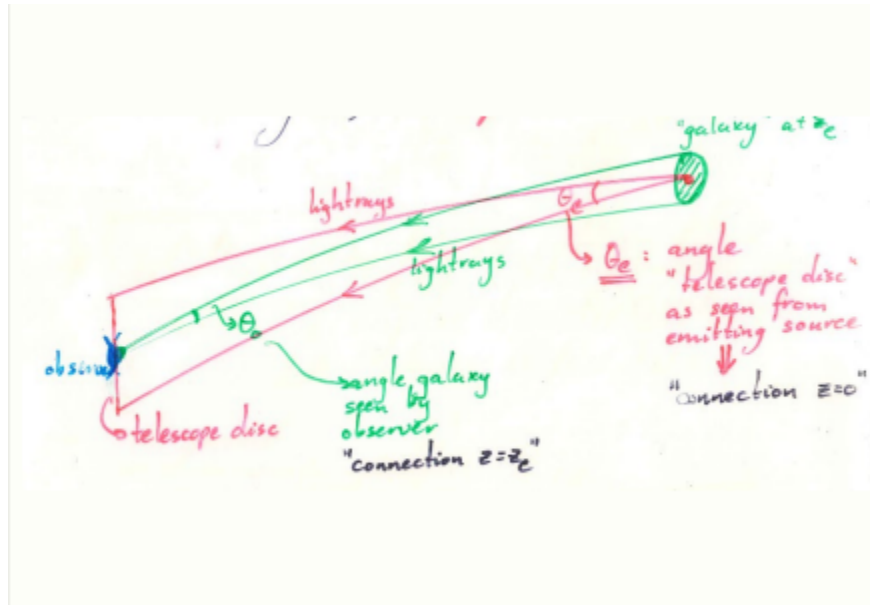 "galaxy" at z_e
lightrays
θ_e
lightrays
θ_e : angle
"telescope disc"
as seen from
emitting source
"connection z=0"
θ_o
observer
angle galaxy
seen by
observer
"connection z=z_e"
telescope disc